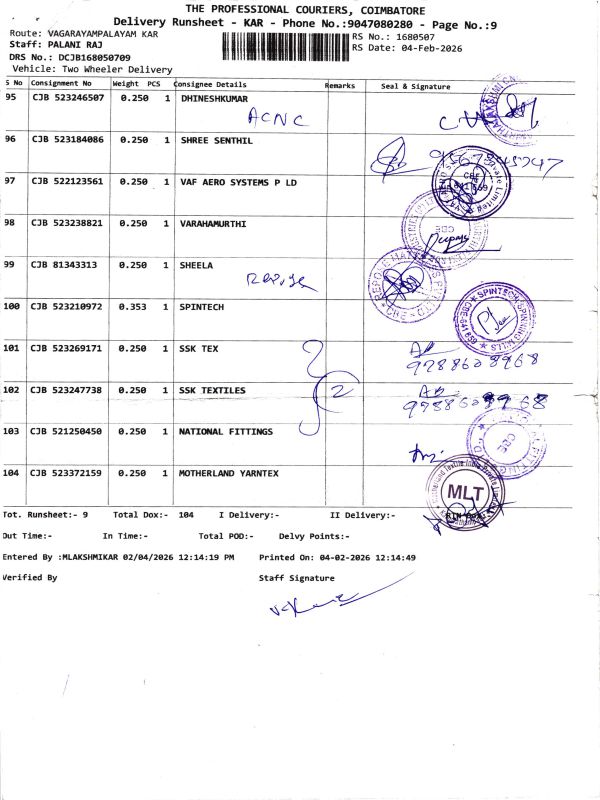 THE PROFESSIONAL COURIERS, COIMBATORE
Delivery Runsheet - KAR - Phone No.:9047080280 - Page No.:9
Route: VAGARAYAMPALAYAM KAR
RS No.: 1680507
Staff: PALANI RAJ
RS Date: 04-Feb-2026
DRS No.: DCJB168050709
Vehicle: Two Wheeler Delivery
S No Consignment No Weight PCS Consignee Details Remarks Seal & Signature
95 CJB 523246507 0.250 1 DHINESHKUMAR
ACNC
96 CJB 523184086 0.250 1 SHREE SENTHIL
97 CJB 522123561 0.250 1 VAF AERO SYSTEMS P LD
98 CJB 523238821 0.250 1 VARAHAMURTHI
99 CJB 81343313 0.250 1 SHEELA
100 CJB 523210972 0.353 1 SPINTECH
SPINTECH SPINNING MILLS
101 CJB 523269171 0.250 1 SSK TEX
9788608968
102 CJB 523247738 0.250 1 SSK TEXTILES 2
103 CJB 521250450 0.250 1 NATIONAL FITTINGS
104 CJB 523372159 0.250 1 MOTHERLAND YARNTEX
MLT
Tot. Runsheet:- 9 Total Dox:- 104 I Delivery:- II Delivery:-
Out Time:- In Time:- Total POD:- Delvy Points:-
Entered By :MLAKSHMIKAR 02/04/2026 12:14:19 PM Printed On: 04-02-2026 12:14:49
Verified By Staff Signature